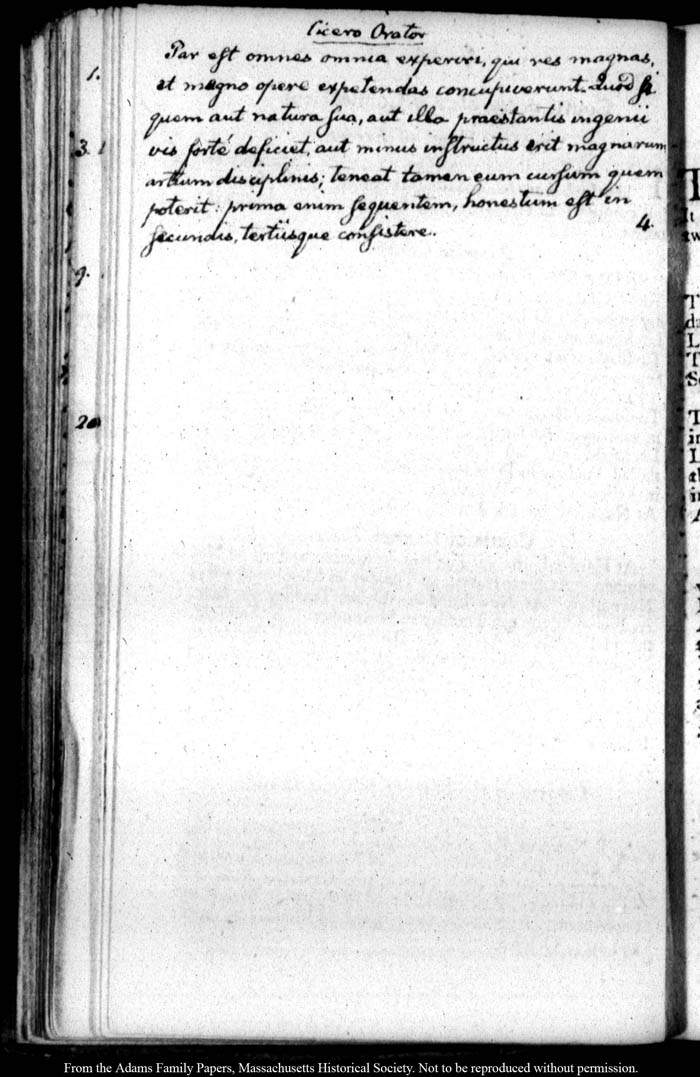 Cicero Orator
Par est omnes omnia experiri, qui res magnas,
et magno opere expetendas concupiverunt. Quod si
quem aut natura sua, aut illa praestantis ingenii
vis forté deficiet, aut minus instructus erit magnarum
artium disciplinis; teneat tamen eum cursum quem
poterit: prima enim sequentem, honestum est in
secundis, tertiisque consistere.
4.
1.
3. 1
9.
20
From the Adams Family Papers, Massachusetts Historical Society. Not to be reproduced without permission.